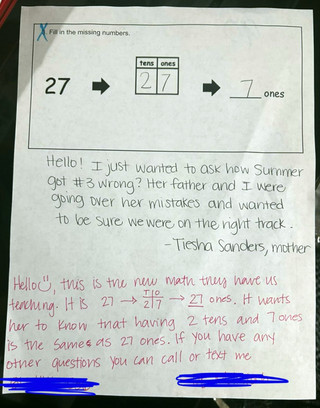 X Fill in the missing numbers.
tens ones
27 → 2 7 → 7 ones
Hello! I just wanted to ask how Summer
got #3 wrong? Her father and I were
going over her mistakes and wanted
to be sure we were on the right track.
- Tiesha Sanders, mother
Hello☺, this is the new math they have us
teaching. It is 27 → T|O 2|7 → 27 ones. It wants
her to know that having 2 tens and 7 ones
is the same as 27 ones. If you have any
other questions you can call or text me